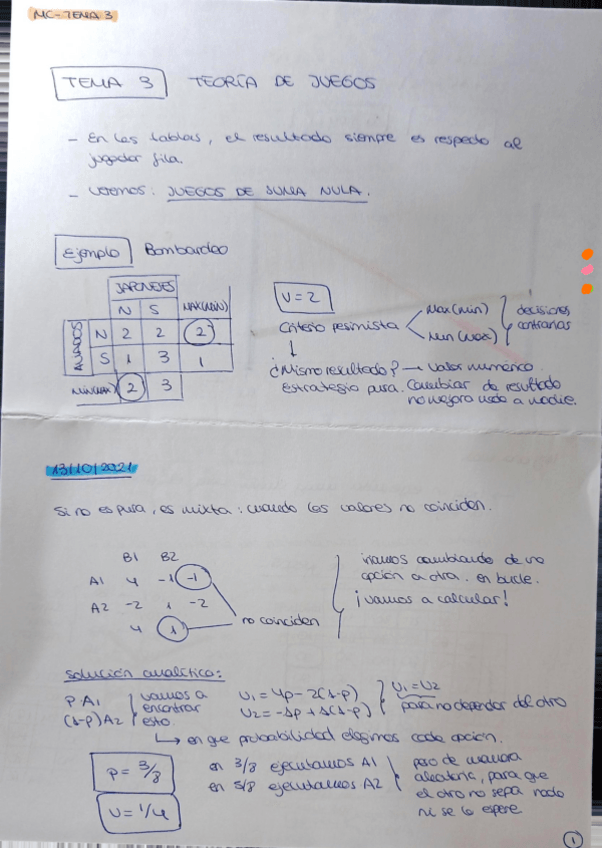 MC-TEMA 3
TEMA 3 TEORÍA DE JUEGOS
- En las tablas, el resultado siempre es respecto al
jugador fila.
- Veremos: JUEGOS DE SUMA NULA.
Ejemplo Bombardeo
JAPONESES
N S MAX(MIN)
ALIADOS
N 2 2 2
S 1 3 1
MIN(MAX) 2 3
V=2
Criterio pesimista
Max(min)
Min(max)
decisiones
contrarias
↓
¿Mismo resultado? → Valor numérico.
Estrategia pura. Cambiar de resultado
no mejora nada a nadie.
13/10/2021
Si no es pura, es mixta: cuando los valores no coinciden.
B1 B2
A1 4 -1 -1
A2 -2 1 -2
4 1
no coinciden
iríamos cambiando de una
opción a otra. en bucle.
¡vamos a calcular!
solución analítica:
P A1
(1-P) A2
vamos a
encontrar
esto.
U1 = 4p - 2(1-p)
U2 = -1p + 1(1-p)
U1 = U2
para no depender del otro
↳ en que probabilidad elegimos cada opción.
P = 3/8
V = 1/4
en 3/8 ejecutamos A1
en 5/8 ejecutamos A2
pero de manera
aleatoria, para que
el otro no sepa nada
ni se lo espere
1